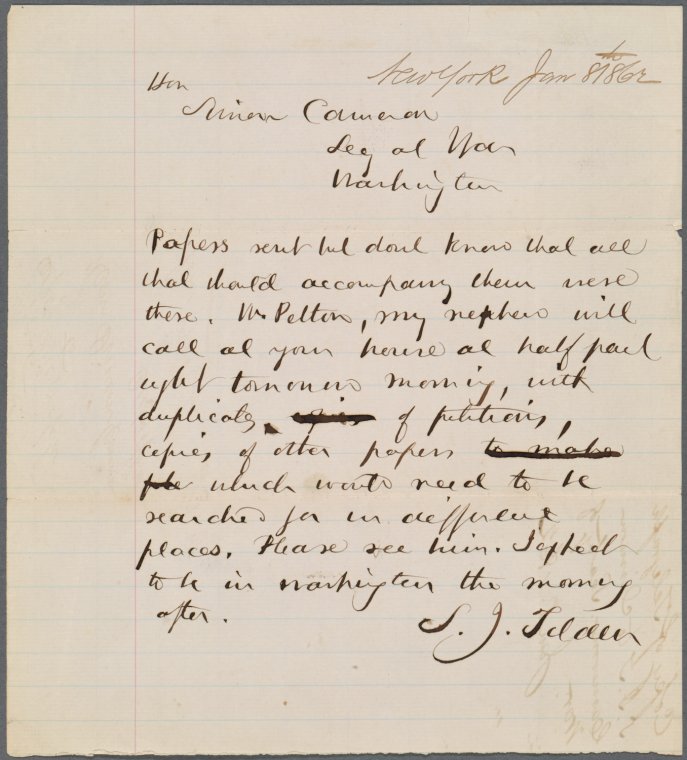 New York Jan 8th 1862
Hon
Simon Cameron
Sec of War
Washington
Papers sent but dont know that all
that should accompany them were
there. Mr Pelton, my nephew will
call at your house at half past
eight tomorrow morning, with
duplicates copies of petitions,
copies of other papers to make
which would need to be
searched for in different
places. Please see him. I expect
to be in Washington the morning
after.
S. J. Tilden